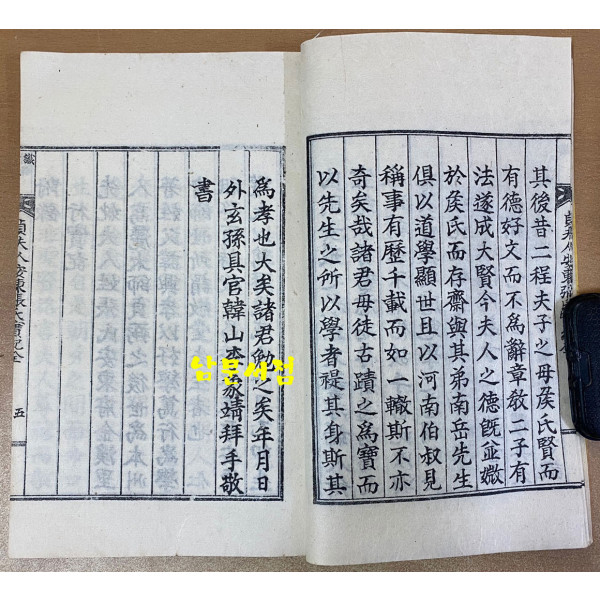 其後昔二程夫子之母侯氏賢而
有德好文而不爲辭章敎二子有
法遂成大賢今夫人之德旣並媺
於侯氏而存齋與其弟南岳先生
俱以道學顯世且以河南伯叔見
稱事有歷千載而如一轍斯不亦
奇矣哉諸君毋徒古蹟之爲寶而
以先生之所以學者禔其身斯其
爲孝也大矣諸君勉之矣年月日
外玄孫具官韓山李家靖拜手敬
書
貞夫人安東張氏實記全
五
남문서점